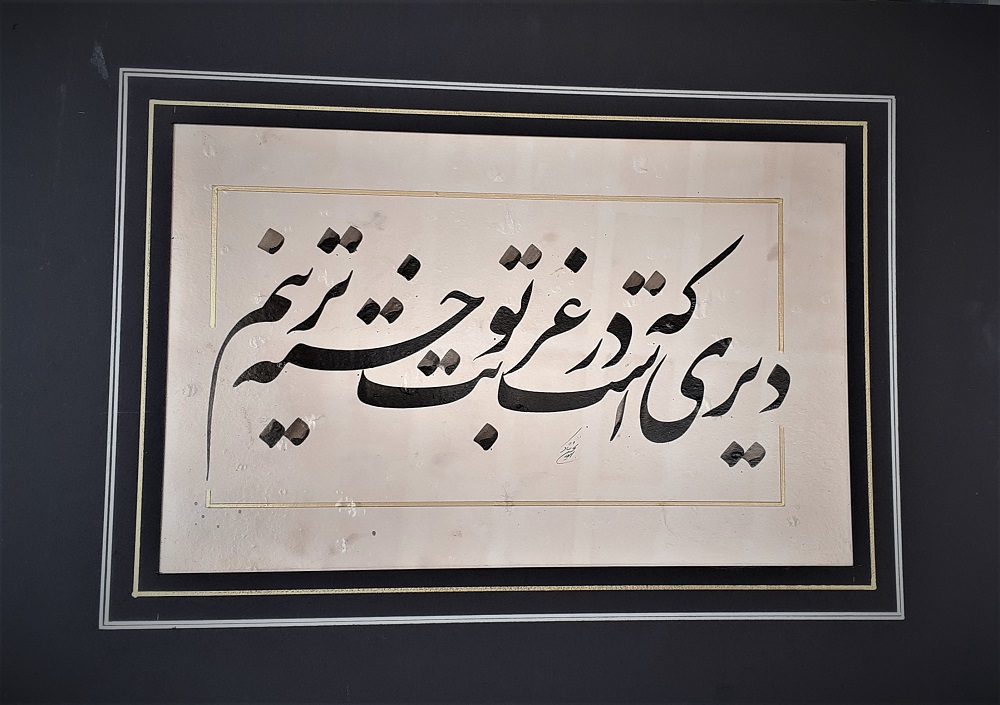 دیری است که در غربت تو خسته ترینم